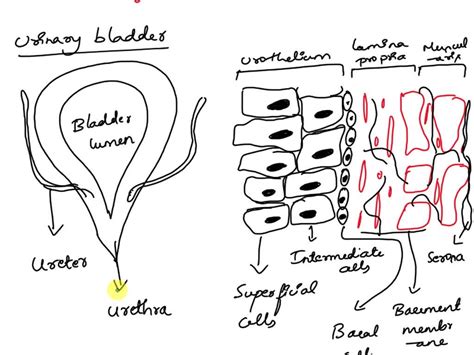 Urinary bladder
Bladder
lumen
Ureter
Urethra
Urothelium
Lamina
propria
Muscul
-aris
Superficial
cells
Intermediate
cells
Basal
Basement
membr
-ane
Serosa